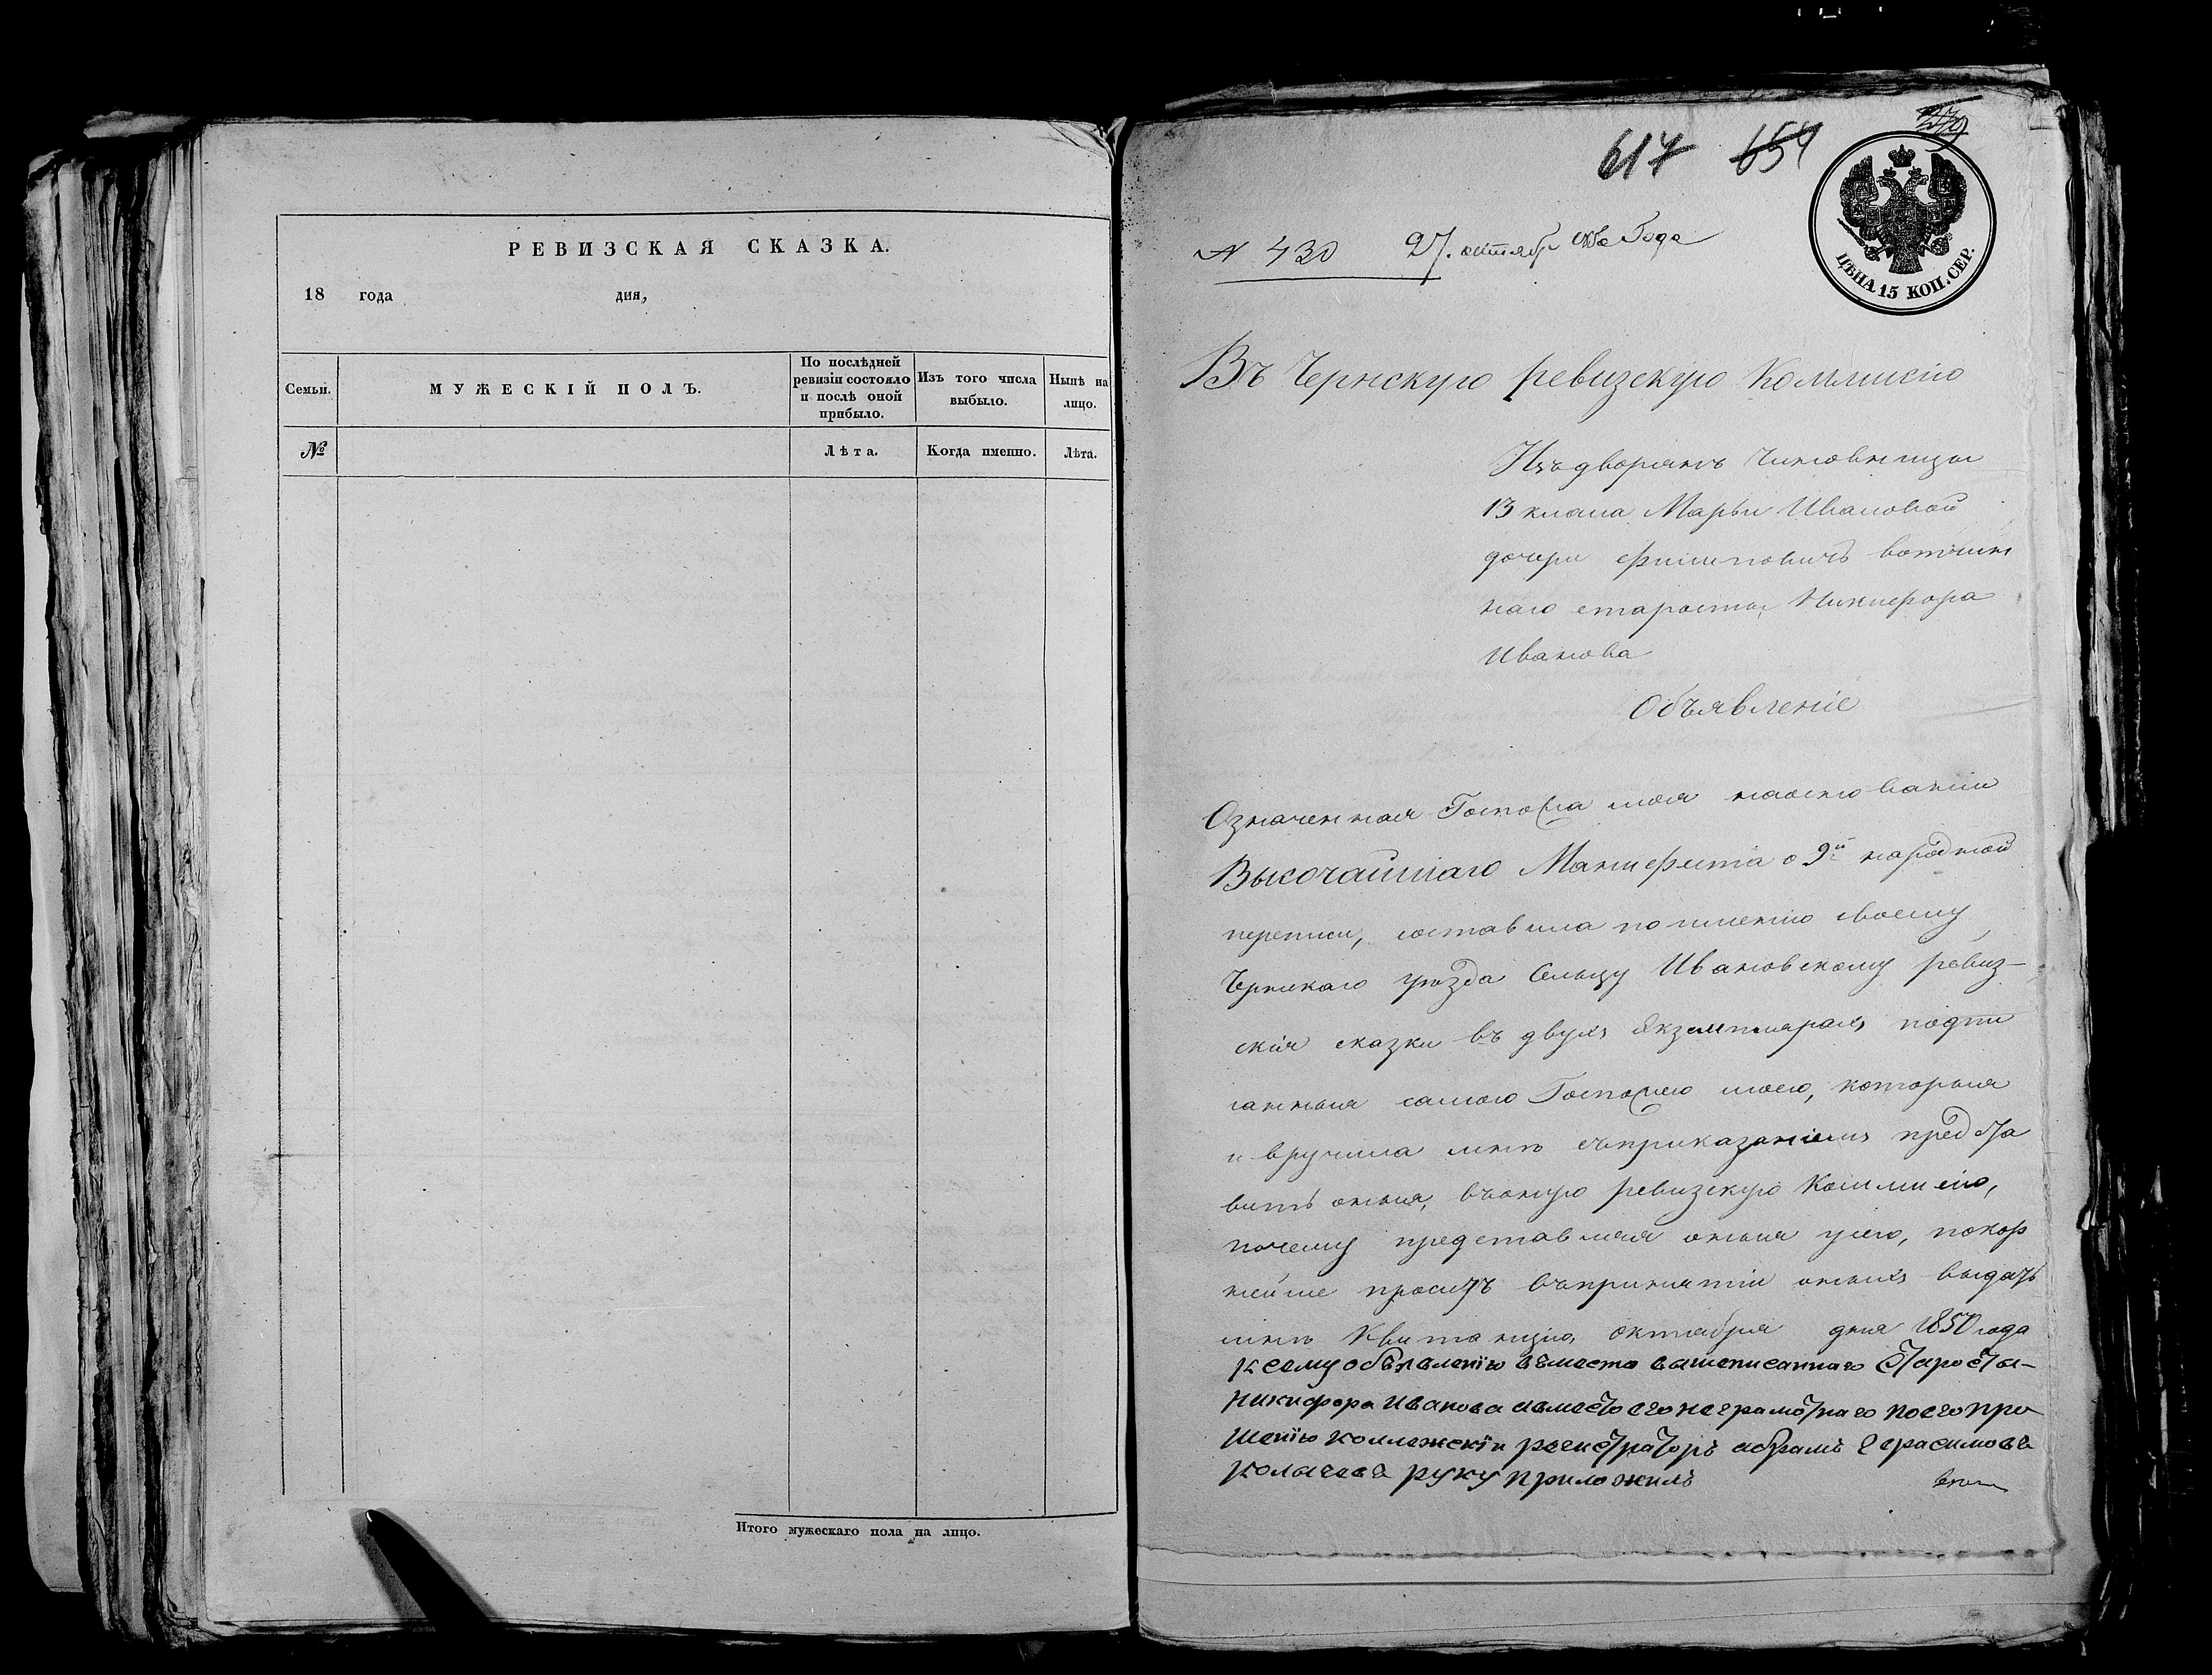 РЕВИЗСКАЯ СКАЗКА.
18 года дня,
Семьи.
МУЖЕСКІЙ ПОЛЪ.
По послѣдней ревизіи состояло и послѣ оной прибыло.
Изъ того числа выбыло.
Нынѣ на лицо.
№
Лѣта.
Когда именно.
Лѣта.
Итого мужескаго пола на лицо.
617 654
ЦѢНА 15 КОП. СЕР.
N 430 27. октяб года
Въ Чернскую ревизскую Коммисію
Изъ дворянъ чиновницы
13 класа Марьи Ивановой
дочери Филиповичъ вотчин
наго старосты Никифора
Иванова
Объявленіе
Означенная Госпожа моя наосновании
Высочайшаго Манифеста о 9й народной
переписи, составила по имению своему
Чернскаго уѣзда Сельцу Ивановскому ревиз-
скія сказки въ двухъ Экземплярахъ подпи
санныя самою Госпожею моею, которыя
и вручила мнѣ съприказаніемъ предста
вить оныя, въоную ревизскую Коммисію,
почему представляя оныя усего, покор
нейше проситъ въпринятіи оныхъ выдать
мнѣ Квитанцію, октября дня 1850 года
Ксему объявленію вместо вышеписаннаго Старосты-
Никифора Иванова авместо его неграмотнаго поего про
шенію коллежскій регистраторъ абрамъ Герасимовъ
Колычевъ руку приложилъ